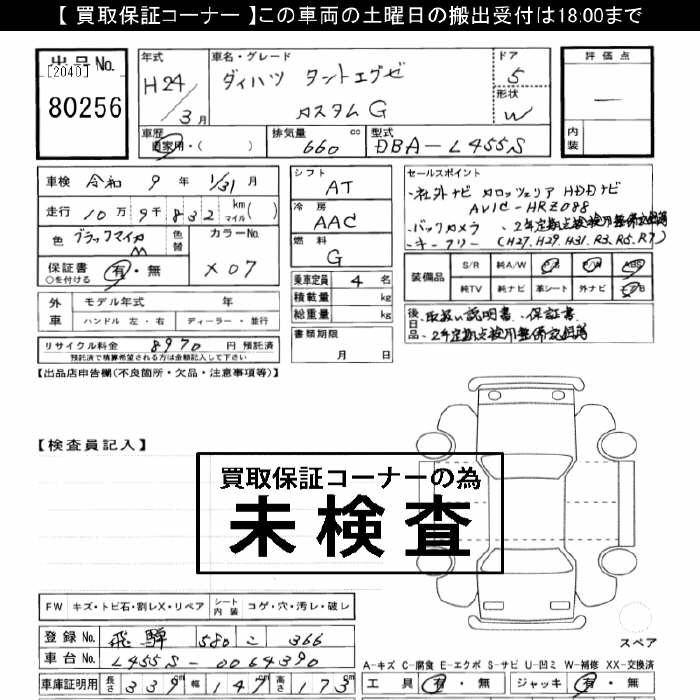 【買取保証コーナー】この車両の土曜日の搬出受付は18:00まで
出品No.
[2040]
80256
年式
H24/3月
車名・グレード
ダイハツ タントエグゼ
カスタムG
ドア
5
形状
W
評価点
―
内装
車歴
自家用・( )
排気量
660 cc
型式
DBA-L455S
車検 令和 9年 1/31月
走行 10万9千832 km( ) マイル
色 ブラックマイカM
色替
カラーNo.
X07
保証書
○を付ける
有・無
シフト
AT
冷房
AAC
燃料
G
乗車定員 4名
積載量 kg
総重量 kg
書類期限
月 日
セールスポイント
・社外ナビ カロッツェリア HDDナビ
AVIC-HRZ088
・バックカメラ ・2年定期点検用整備記録簿
・キーフリー (H27.H29.H31.R3.R5.R7)
装備品
S/R 純A/W P/S P/W ABS
純TV 純ナビ 革シート 外ナビ エアB
後日品
・取扱い説明書・保証書
・2年定期点検用整備記録簿
外車
モデル年式 年
ハンドル 左・右 ディーラー・並行
リサイクル料金 8970円 預託済
預託済で積算希望される方は金額記入して下さい
【出品店申告欄(不良箇所・欠品・注意事項等)】
【検査員記入】
買取保証コーナーの為
未検査
FW キズ・トビ石・割レX・リペア シート内装 コゲ・穴・汚レ・破レ
登録No. 飛騨 580 こ 366
車台No. L455S-0064390
車庫証明用 長さ 339 幅 147 高さ 173
スペア
A-キズ C-腐食 E-エクボ S-サビ U-凹ミ W-補修 XX-交換済
工具 有・無 ジャッキ 有・無